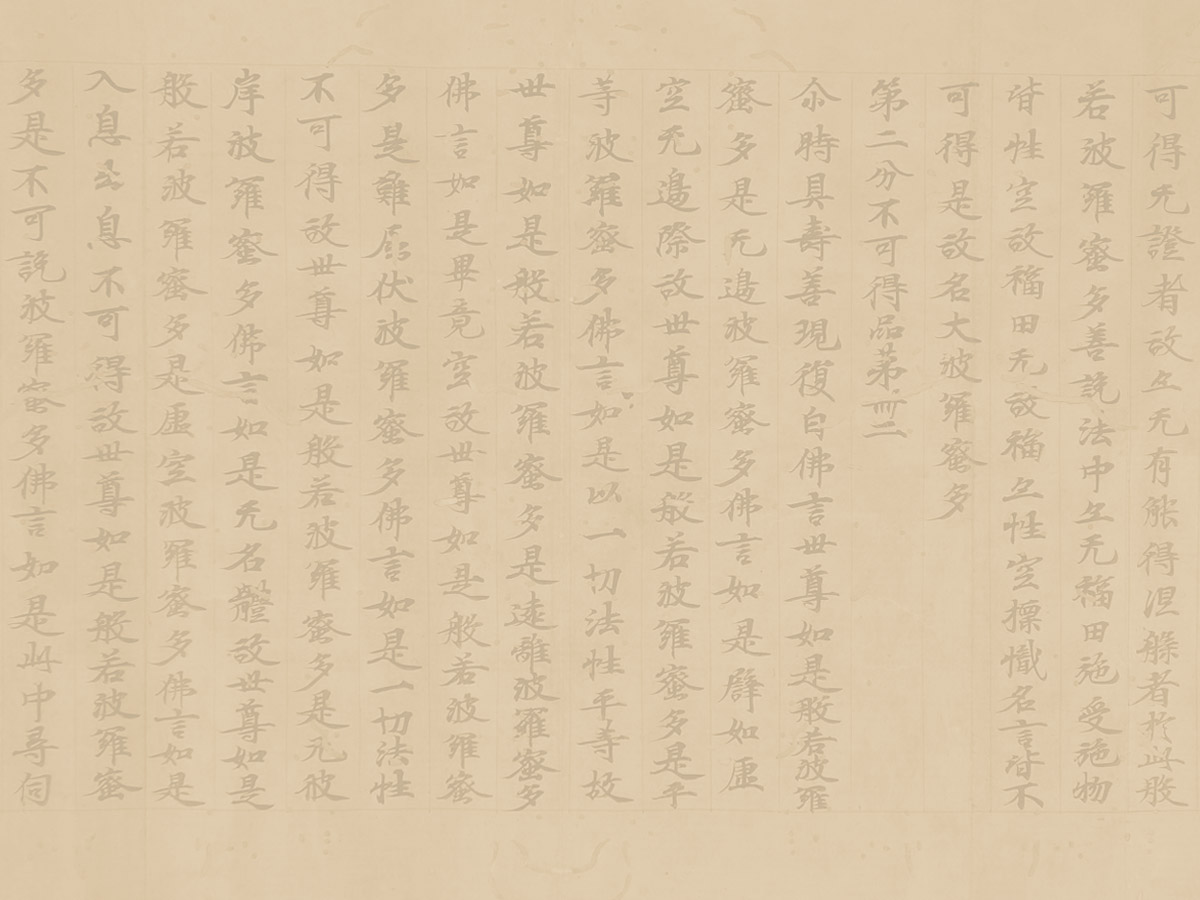 可得无證者故亦无有能得涅槃者於此般
若波羅蜜多善說法中亦无福田施受施物
皆性空故福田无故福亦性空摽幟名言皆不
可得是故名大波羅蜜多
第二分不可得品第卌二
尒時具壽善現復白佛言世尊如是般若波羅
蜜多是无邊波羅蜜多佛言如是辟如虛
空无邊際故世尊如是般若波羅蜜多是平
等波羅蜜多佛言如是以一切法性平等故
世尊如是般若波羅蜜多是遠離波羅蜜多
佛言如是畢竟空故世尊如是般若波羅蜜
多是難屈伏波羅蜜多佛言如是一切法性
不可得故世尊如是般若波羅蜜多是无彼
岸波羅蜜多佛言如是无名體故世尊如是
般若波羅蜜多是虛空波羅蜜多佛言如是
入息出息不可得故世尊如是般若波羅蜜
多是不可說波羅蜜多佛言如是此中尋伺